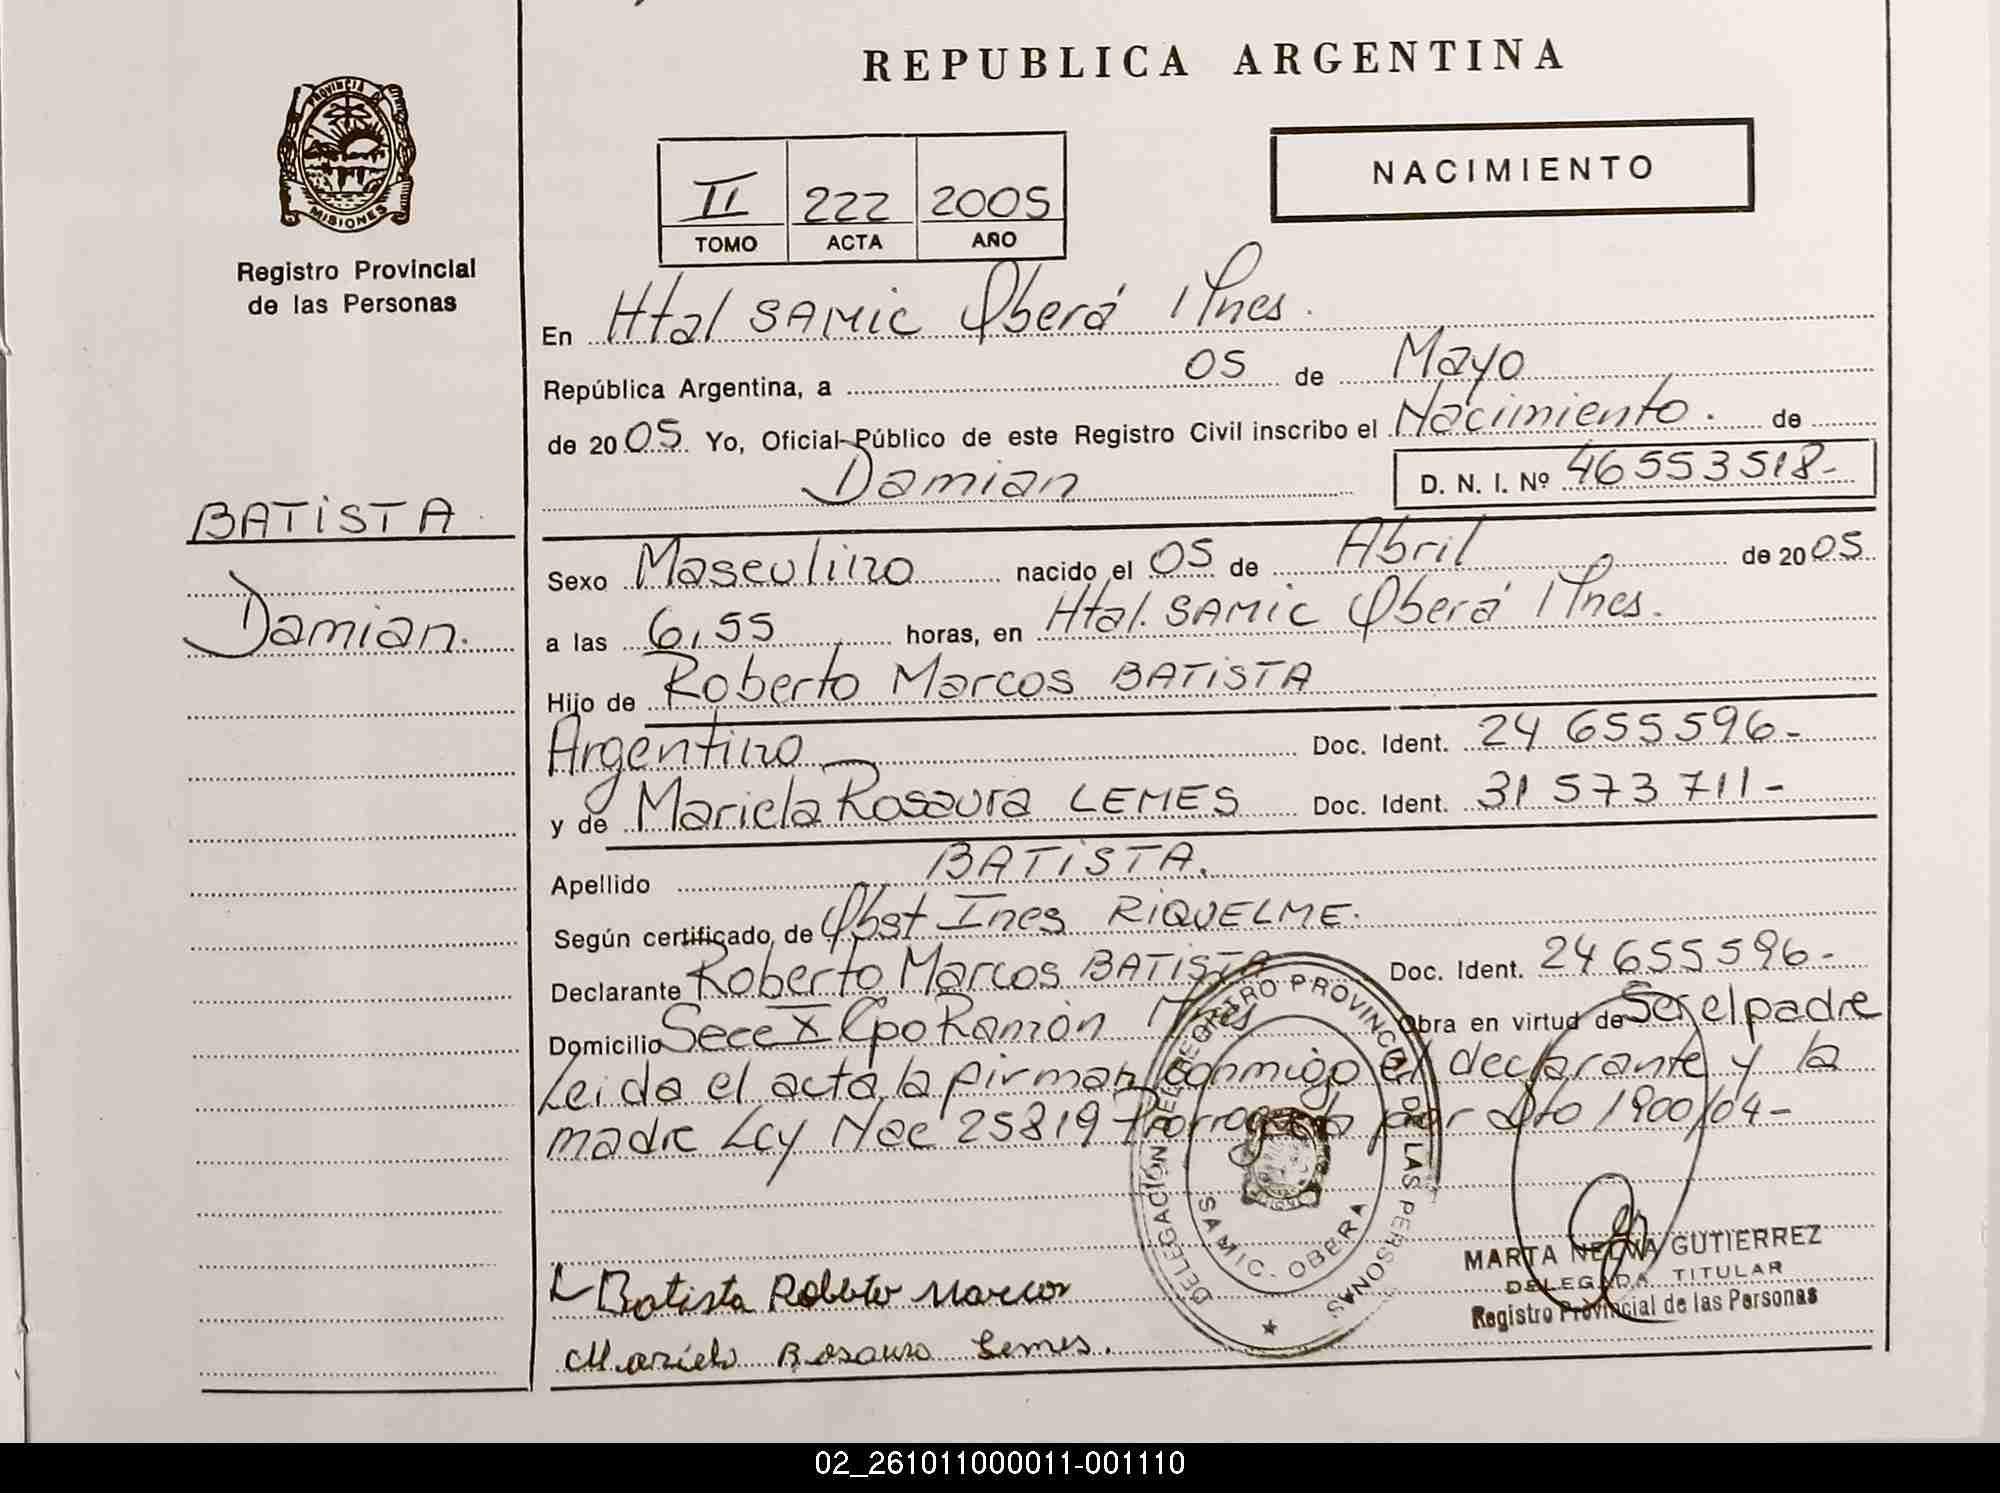 REPUBLICA ARGENTINA
PROVINCIA DE
MISIONES
Registro Provincial
de las Personas
II 222 2005
TOMO ACTA AÑO
NACIMIENTO
En Htal SAMIC Oberá Mnes.
República Argentina, a 05 de Mayo
de 2005. Yo, Oficial Público de este Registro Civil inscribo el Nacimiento. de
Damian D. N. I. Nº 46553518-
BATISTA
Damian.
Sexo Masculino nacido el 05 de Abril de 2005
a las 6,55 horas, en Htal. SAMIC Oberá Mnes.
Hijo de Roberto Marcos BATISTA
Argentino Doc. Ident. 24 655596-
y de Mariela Rosaura LEMES Doc. Ident. 31 573 711-
Apellido BATISTA.
Según certificado de Obst Ines RIQUELME.
Declarante Roberto Marcos BATISTA Doc. Ident. 24 655596-
Domicilio Secc X Cpo Ramón Mnes Obra en virtud de Ser el padre
Leida el acta, la firman conmigo el declarante y la
madre Ley Nac 25819 Prorrogada por Dto 1900/04-
DELEGACIÓN DEL REGISTRO PROVINCIAL DE LAS PERSONAS
SAMIC - OBERA
Batista Roberto Marcos
Mariela Rosaura Lemes.
MARTA NELVA GUTIERREZ
DELEGADA TITULAR
Registro Provincial de las Personas
02_261011000011-001110